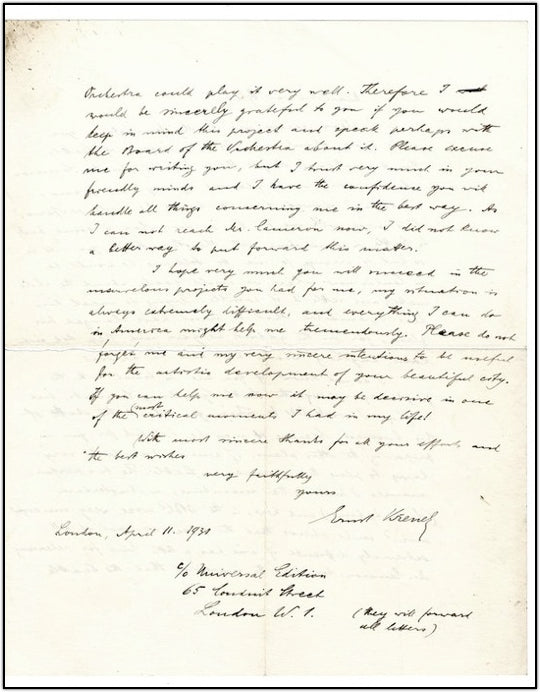 Orchestra could play it very well. Therefore I
would be sincerelly grateful to you if you would
keep in mind this project and speak perhaps with
the Board of the Orchestra about it. Please excuse
me for writing you, but I trust very much in your
friendly minds and I have the confidence you will
handle all things concerning me in the best way. As
I can not reach Mr. Cameron now, I did not know
a better way to put forward this matter.
I hope very much you will succeed in the
marvelous projects you had for me, my situation is
always extremely difficult, and everything I can do
in America might help me tremendously. Please do not
forget me and my very sincere intentions to be useful
for the artistic development of your beautiful city.
If you can help me now it may be decisive in one
of the most critical moments I had in my life!
With most sincere thanks for all your efforts and
the best wishes
very faithfully
yours
Ernst Krenek
London, April 11.
c/o Universal Edition
65 Conduit Street
London W. 1.
(they will forward
all letters)